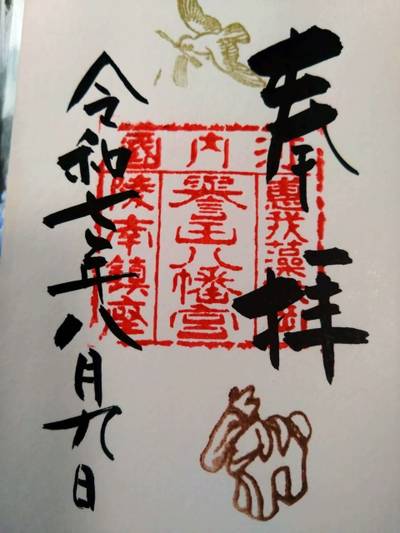 奉拝
河内國
惠我藻伏岡
譽田八幡宮
陵南鎮座
令和七年八月九日